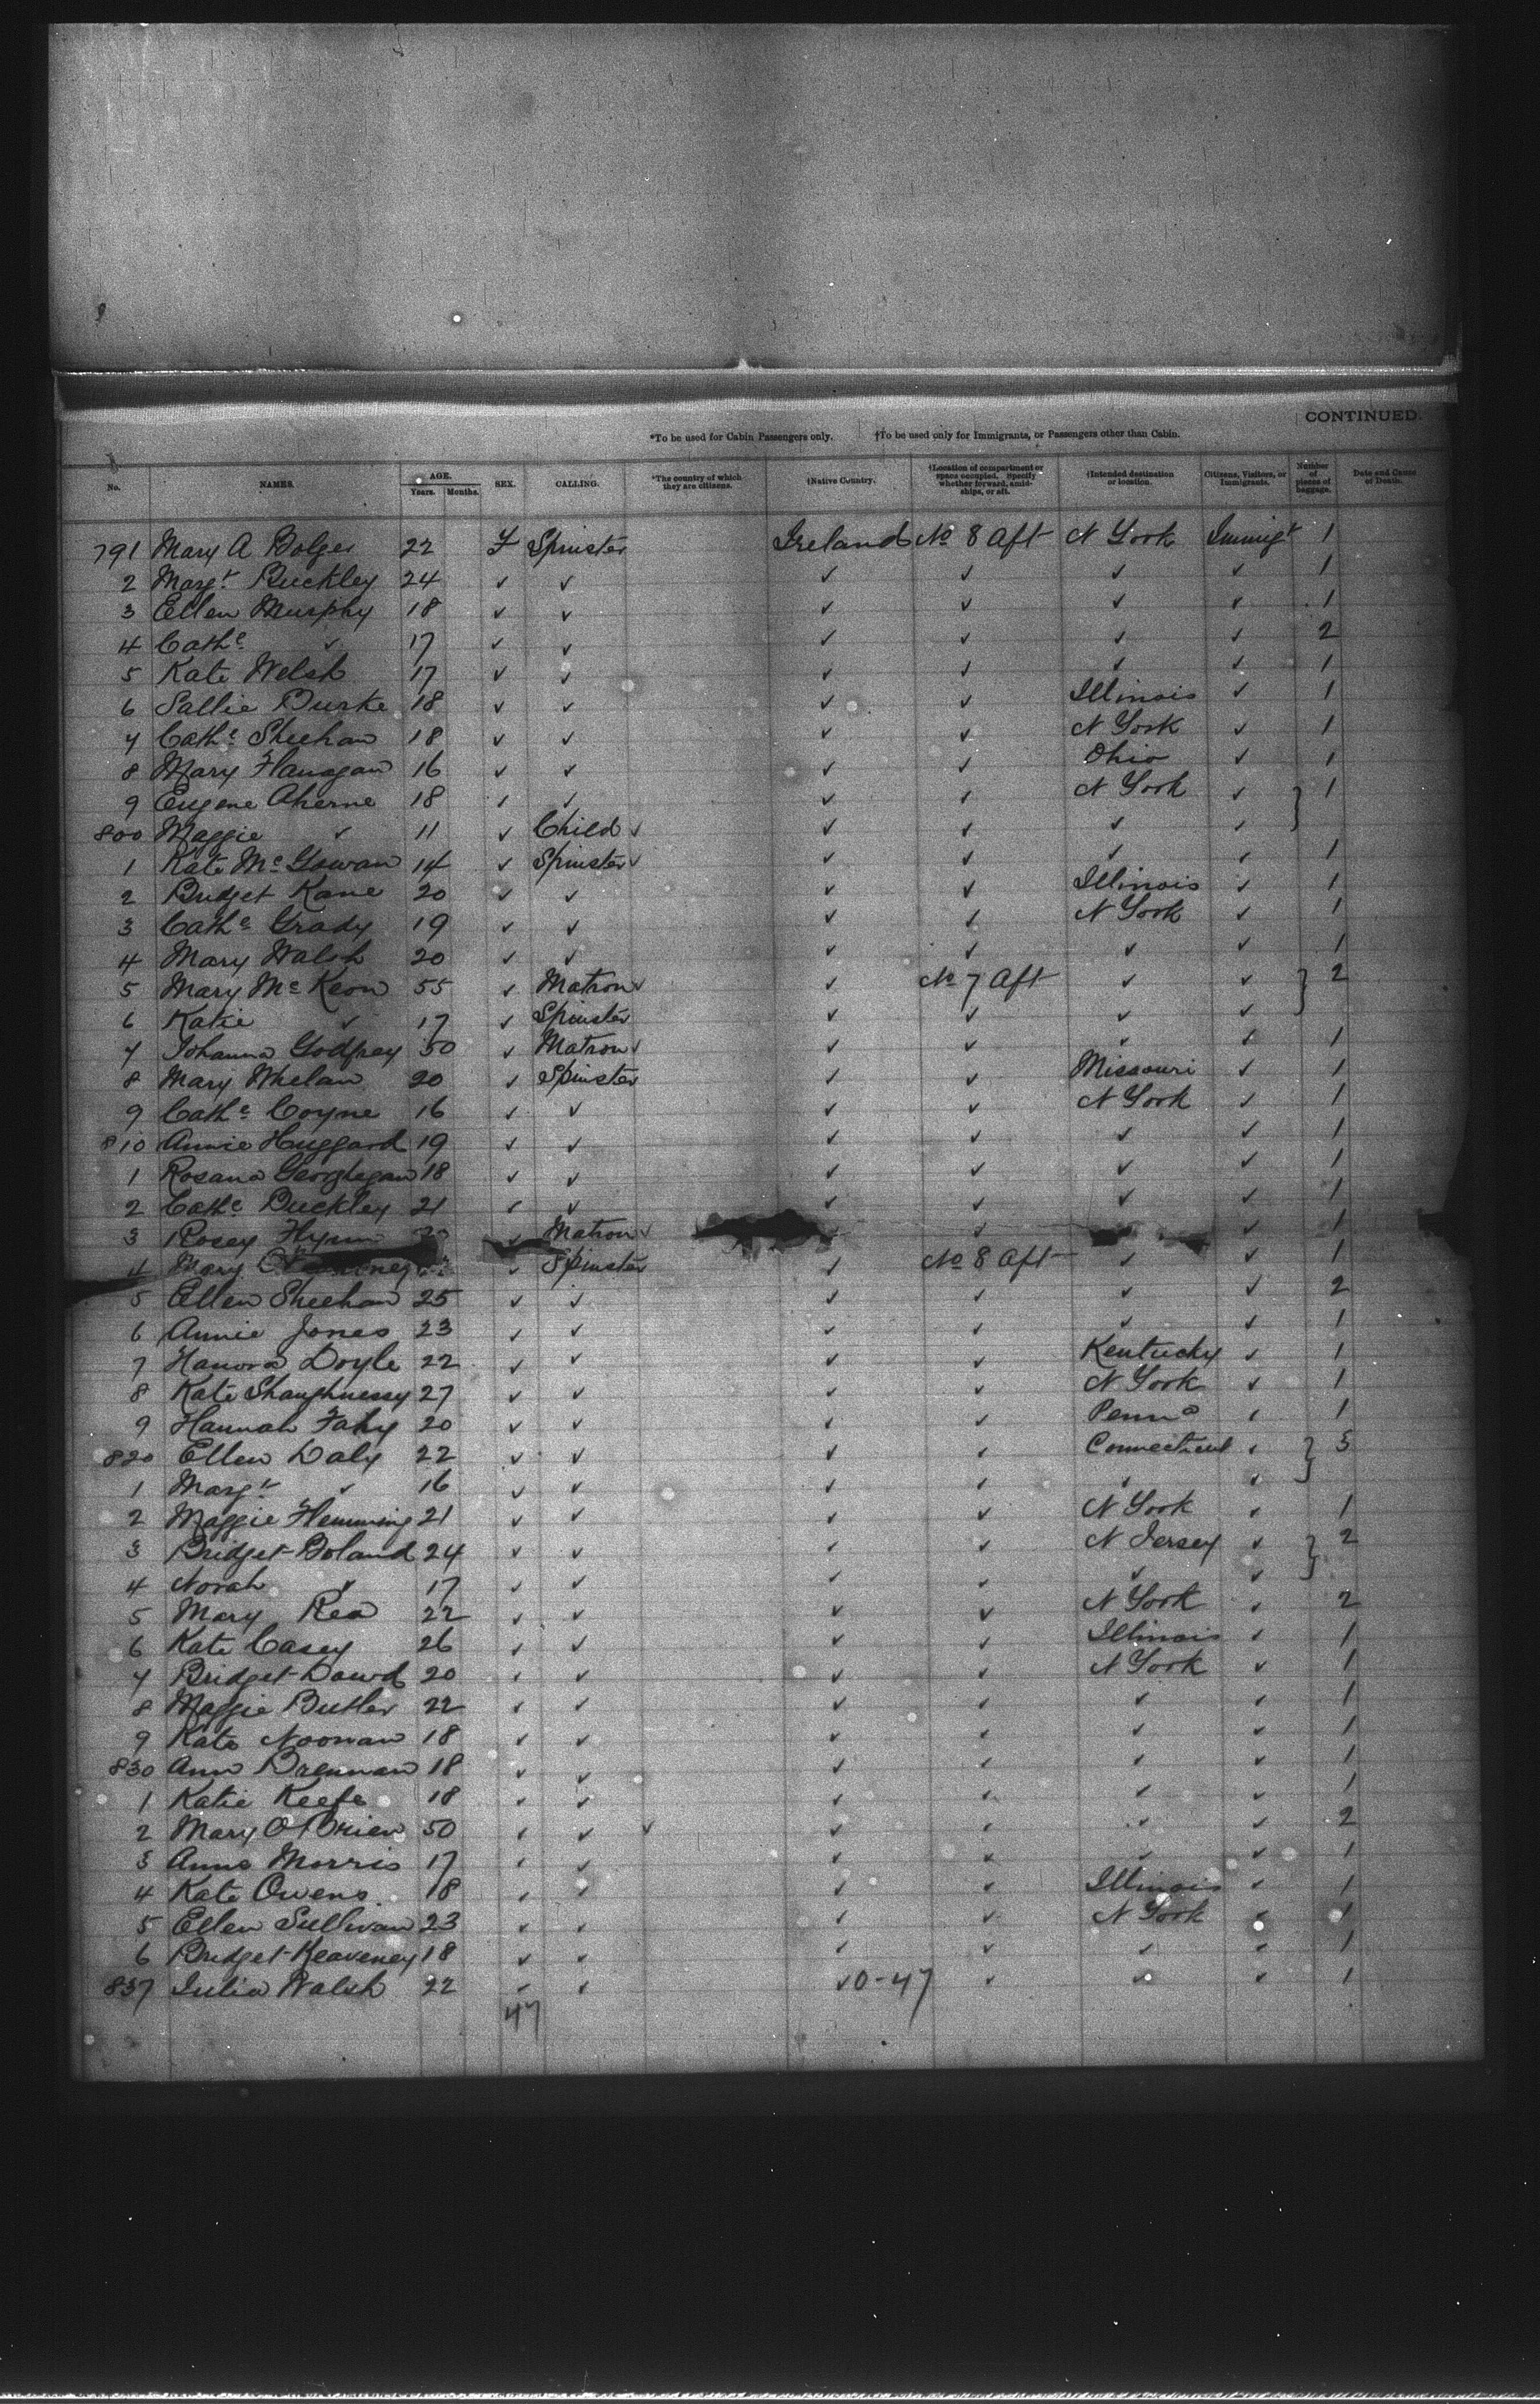 CONTINUED.
*To be used for Cabin Passengers only. †To be used only for Immigrants, or Passengers other than Cabin.
No. NAMES. AGE. Years. Months. SEX. CALLING. *The country of which they are citizens. †Native Country. †Location of compartment or space occupied. Specify whether forward, amidships, or aft. †Intended destination or location. Citizens, Visitors, or Immigrants. Number of pieces of baggage. Date and Cause of Death.
791 Mary A Bolger 22 F Spinster Ireland No 8 Aft N York Immigt 1
2 Margt Buckley 24 ✓ ✓ ✓ ✓ ✓ ✓ 1
3 Ellen Murphy 18 ✓ ✓ ✓ ✓ ✓ ✓ 1
4 Cathe ✓ 17 ✓ ✓ ✓ ✓ ✓ ✓ 2
5 Kate Welsh 17 ✓ ✓ ✓ ✓ ✓ ✓ 1
6 Sallie Burke 18 ✓ ✓ ✓ ✓ Illinois ✓ 1
7 Cathe Sheehan 18 ✓ ✓ ✓ ✓ N York ✓ 1
8 Mary Flanagan 16 ✓ ✓ ✓ ✓ Ohio ✓ 1
9 Eugene Aherne 18 ✓ ✓ ✓ ✓ N York ✓ } 1
800 Maggie ✓ 11 ✓ Child ✓ ✓ ✓ ✓ ✓
1 Kate McGowan 14 ✓ Spinster ✓ ✓ ✓ ✓ ✓ 1
2 Bridget Kane 20 ✓ ✓ ✓ ✓ Illinois ✓ 1
3 Cathe Grady 19 ✓ ✓ ✓ ✓ N York ✓ 1
4 Mary Walsh 20 ✓ ✓ ✓ ✓ ✓ ✓ 1
5 Mary McKeon 55 ✓ Matron ✓ ✓ No 7 Aft ✓ ✓ } 2
6 Katie ✓ 17 ✓ Spinster ✓ ✓ ✓ ✓
7 Johanna Godfrey 50 ✓ Matron ✓ ✓ ✓ ✓ ✓ 1
8 Mary Whelan 20 ✓ Spinster ✓ ✓ Missouri ✓ 1
9 Cathe Coyne 16 ✓ ✓ ✓ ✓ N York ✓ 1
810 Annie Huggard 19 ✓ ✓ ✓ ✓ ✓ ✓ 1
1 Rosana Georghegan 18 ✓ ✓ ✓ ✓ ✓ ✓ 1
2 Cathe Buckley 21 ✓ ✓ ✓ ✓ ✓ ✓ 1
3 Rosey Flynn ✓ Matron ✓ ✓ ✓ 1
4 Mary ✓ Spinster ✓ No 8 Aft ✓ ✓ 1
5 Ellen Sheehan 25 ✓ ✓ ✓ ✓ ✓ ✓ 2
6 Annie Jones 23 ✓ ✓ ✓ ✓ ✓ ✓ 1
7 Hanora Doyle 22 ✓ ✓ ✓ ✓ Kentucky ✓ 1
8 Kate Shaughnessy 27 ✓ ✓ ✓ ✓ N York ✓ 1
9 Hannah Fahy 20 ✓ ✓ ✓ ✓ Penna ✓ 1
820 Ellen Daly 22 ✓ ✓ ✓ ✓ Connecticut ✓ } 3
1 Margt ✓ 16 ✓ ✓ ✓ ✓ ✓ ✓
2 Maggie Flemming 21 ✓ ✓ ✓ ✓ N York ✓ 1
3 Bridget Boland 24 ✓ ✓ ✓ ✓ N Jersey ✓ } 2
4 Norah ✓ 17 ✓ ✓ ✓ ✓ ✓ ✓
5 Mary Rea 22 ✓ ✓ ✓ ✓ N York ✓ 2
6 Kate Casey 26 ✓ ✓ ✓ ✓ Illinois ✓ 1
7 Bridget Dowd 20 ✓ ✓ ✓ ✓ N York ✓ 1
8 Maggie Butler 22 ✓ ✓ ✓ ✓ ✓ ✓ 1
9 Kate Noonan 18 ✓ ✓ ✓ ✓ ✓ ✓ 1
830 Ann Brennan 18 ✓ ✓ ✓ ✓ ✓ ✓ 1
1 Katie Keefe 18 ✓ ✓ ✓ ✓ ✓ ✓ 1
2 Mary O'Brien 50 ✓ ✓ ✓ ✓ ✓ ✓ ✓ 2
3 Anna Morris 17 ✓ ✓ ✓ ✓ ✓ ✓ 1
4 Kate Owens 18 ✓ ✓ ✓ ✓ Illinois ✓ 1
5 Ellen Sullivan 23 ✓ ✓ ✓ ✓ N York ✓ 1
6 Bridget Keaveney 18 ✓ ✓ ✓ ✓ ✓ ✓ 1
837 Julia Walsh 22 ✓ ✓ ✓ 0-47 ✓ ✓ ✓ 1
47